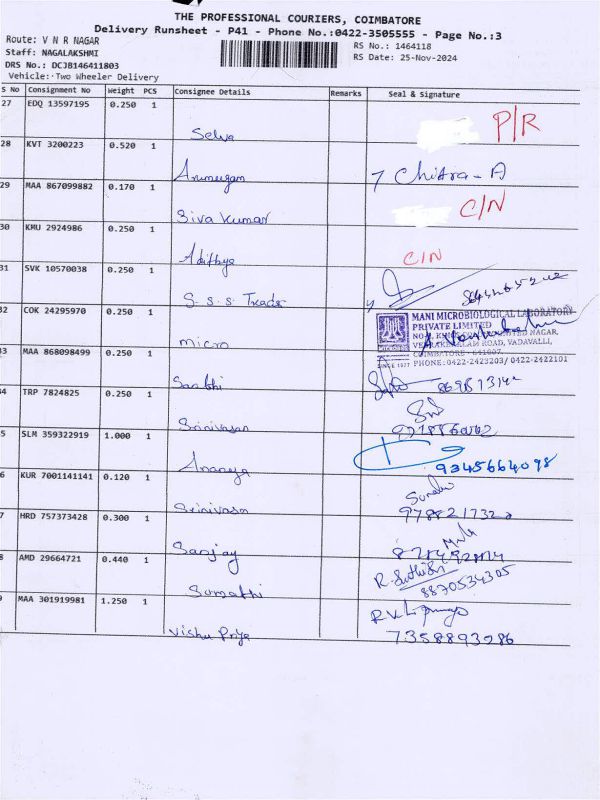 THE PROFESSIONAL COURIERS, COIMBATORE
Delivery Runsheet - P41 - Phone No.:0422-3505555 - Page No.:3
Route: V N R NAGAR
RS No.: 1464118
Staff: NAGALAKSHMI
RS Date: 25-Nov-2024
DRS No.: DCJB146411803
Vehicle: Two Wheeler Delivery
S No Consignment No Weight PCS Consignee Details Remarks Seal & Signature
27 EDQ 13597195 0.250 1
Selva P/R
28 KVT 3200223 0.520 1
Arumugam 7 Chitra-A
29 MAA 867099882 0.170 1
Siva Kumar C/N
30 KMU 2924986 0.250 1
Adithya C/N
31 SVK 10570038 0.250 1
S. S. S Trader
32 COK 24295970 0.250 1
micro
MANI MICROBIOLOGICAL LABORATORY
PRIVATE LIMITED
ROAD, VADAVALLI,
COIMBATORE - 641007
SINCE 1977 PHONE: 0422-2423203/ 0422-2422101
3 MAA 868098499 0.250 1
4 TRP 7824825 0.250 1
Srinivasan
5 SLM 359322919 1.000 1
Ananya 9345664098
6 KUR 7001141141 0.120 1
Srinivasn
7 HRD 757373428 0.300 1
Sanjay
8 AMD 29664721 0.440 1
Sumathi
8870534305
9 MAA 301919981 1.250 1
Vishu Priya 7358893286